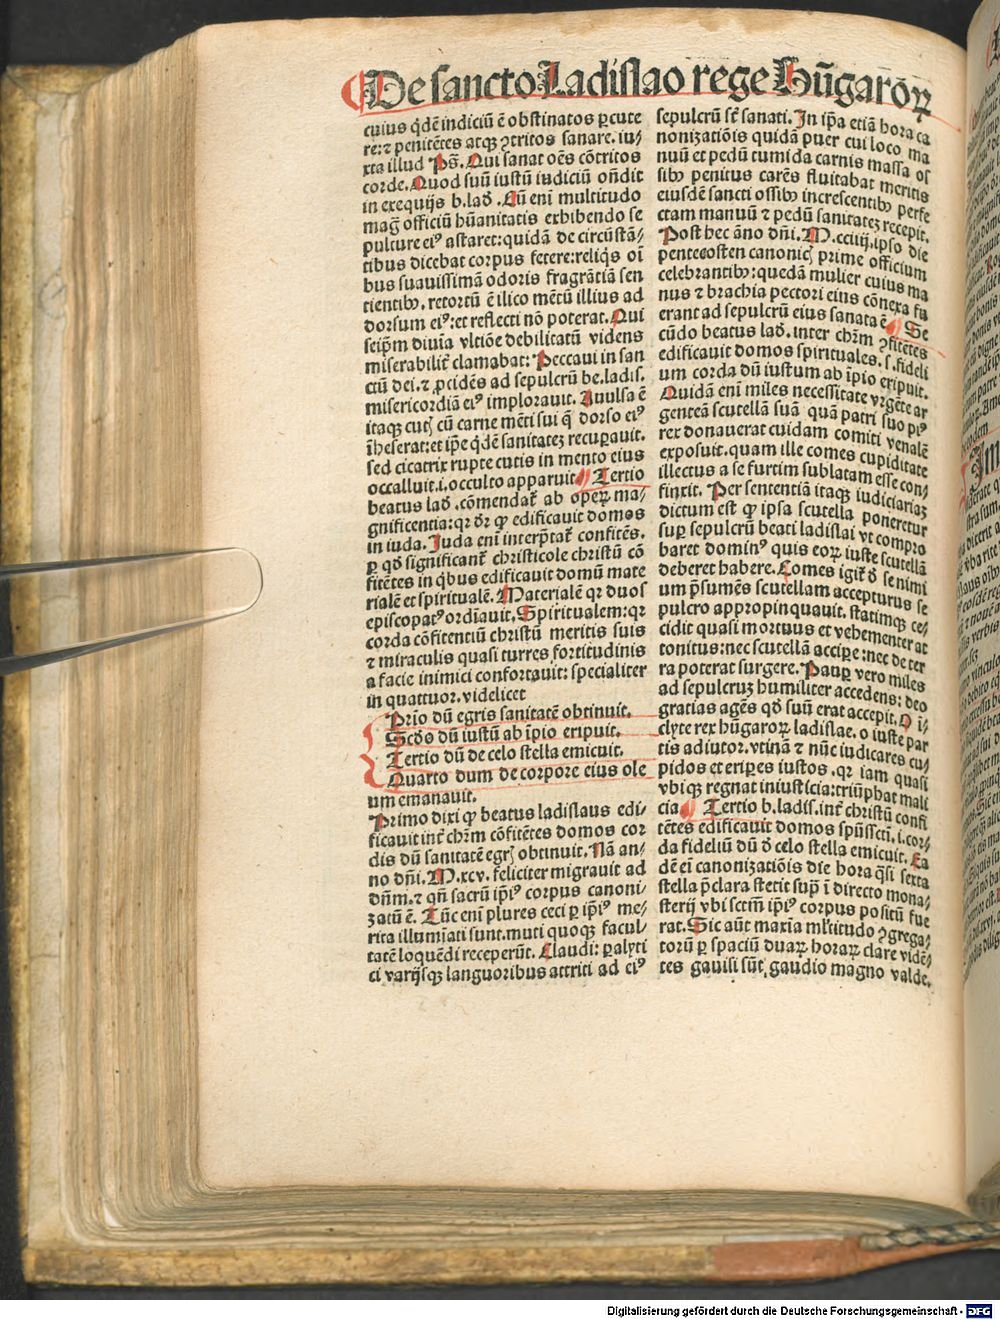 De sancto Ladislao rege Hūgaroꝝ
cuius q̇dē indiciū ē obstinatos ꝑcute
re: ⁊ penitētes atqꝫ ꝯtritos sanare. iu/
xta illud Ps̄. Qui sanat oēs cōtritos
corde. Quod suū iustū iudiciū oñdit
in exequijs b. lad̄. Cū eni multitudo
mag̅ officiū hūanitatis exhibendo se
pulture eiꝰ astaret: quidā de circūstā/
tibus dicebat corpus fetere: reliq̇s oi
bus suauissimā odoris fragrātiā sen
tientibꝫ. retortū ē ilico mētū illius ad
dorsum eiꝰ: et reflecti nō poterat. Qui
seip̄m diuia vltiōe debilitatū videns
miserabilit̄ clamabat: Peccaui in san
ctū dei. ⁊ ꝓcidēs ad sepulcrū be. ladis.
misericordiā eiꝰ implorauit. Auulsa ē
itaqꝫ cut̄ cū carne mēti sui q̄ dorso eiꝰ
īheserat: et ip̄e q̇dē sanitatē recuꝑauit.
sed cicatrix rupte cutis in mento eius
occalluit. i. occulto apparuit ¶ Tertio
beatus lad̄. cōmendat̄ ab opeꝝ ma/
gnificentia: qꝛ d̄r ꝙ edificauit domos
in iuda. Juda eni interp̄tat̄ confitēs.
ꝑ qd̄ significant̄ christicole christū cō
fitētes in q̇bus edificauit domū mate
rialē et spiritualē. Materialē qꝛ duos
episcopatꝰ ordīauit. Spiritualem: qꝛ
corda cōfitentiū christū meritis suis
⁊ miraculis quasi turres fortitudinis
a facie inimici confortauit: specialiter
in quattuor. videlicet
Prio dū egris sanitatē obtinuit.
Scd̄o dū iustū ab īpio eripuit.
Tertio dū de celo stella emicuit.
Quarto dum de corpore eius ole
um emanauit.
Primo dixi ꝙ beatus ladislaus edi/
ficauit int̄ chr̄m cōfitētes domos cor
dis dū sanitatē egr̄ obtinuit. Nā an/
no dñi. M.xcv. feliciter migrauit ad
dñm. ⁊ qñ sacrū ip̄iꝰ corpus canoni/
zatū ē. Tūc eni plures ceci ꝑ ip̄iꝰ me/
rita illumīati sunt. muti quoqꝫ facul/
tatē loquēdi receperūt. Claudi: ꝑalyti
ci varijsqꝫ languoribus attriti ad eiꝰ
sepulcrū sūt sanati. In ip̄a etiā hora ca
nonizatiōis quidā puer cui loco ma
nuū et pedū tumida carnis massa os
sibꝫ penitus carēs fluitabat meritis
eiusdē sancti ossibꝫ increscentibꝫ perfe
ctam manuū ⁊ pedū sanitatē recepit.
Post hec āno dñi. M.cciiij. ipso die
pentecosten canonicꝭ prime officium
celebrantibꝫ: quedā mulier cuius ma
nus ⁊ brachia pectori eius cōnexa fu
erant ad sepulcrū eius sanata ē ¶ Se
cūdo beatus lad̄. inter chr̄m ꝯfitētes
edificauit domos spirituales. s. fideli
um corda dū iustum ab īpio eripuit.
Quidā eni miles necessitate vrgēte ar
genteā scutellā suā quā patri suo piꝰ
rex donauerat cuidam comiti venalē
exposuit. quam ille comes cupiditate
illectus a se furtim sublatam esse con/
finxit. Per sententiā itaqꝫ iudiciariaꝫ
dictum est ꝙ ipsa scutella poneretur
suꝑ sepulcrū beati ladislai vt compro
baret dominꝰ quis eoꝝ iuste scutellā
deberet habere. Comes igit̄ d̄ se nimi
um p̄sumēs scutellam accepturus se
pulcro appropinquauit. statimqꝫ ce/
cidit quasi mortuus et vehementer at
tonitus: nec scutellā accipe: nec de ter
ra poterat surgere. Pauꝑ vero miles
ad sepulcruꝫ humiliter accedens: deo
gratias agēs qd̄ suū erat accepit. O ī/
clyte rex hūgaroꝝ ladislae. o iuste par
tis adiutor. vtinā ⁊ nūc iudicares cu/
pidos et eriꝑes iustos. qꝛ iam quasi
vbiqꝫ regnat iniusticia: triūphat mali
cia ¶ Tertio b. ladis. int̄ christū confi
tētes edificauit domos spūssctī. i. cor/
da fideliū dū d̄ celo stella emicuit. Ea
dē ei canonizatiōis die hora q̄si sexta
stella p̄clara stetit suꝑ ī directo mona/
sterij vbi sctm̄ ip̄iꝰ corpus positū fue
rat. Sic aūt maxia ml̄titudo ꝯgrega/
torū ꝑ spaciū duaꝝ horaꝝ clare vidē/
tes gauisi sūt gaudio magno valde.
Digitalisierung gefördert durch die Deutsche Forschungsgemeinschaft - DFG